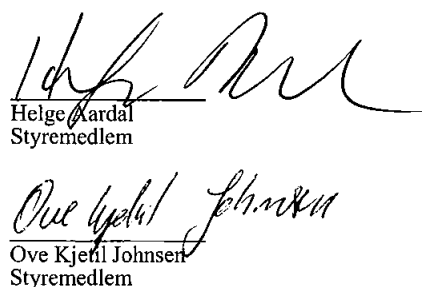 Helge Aardal
Styremedlem
Ove Kjetil Johnsen
Ove Kjetil Johnsen
Styremedlem